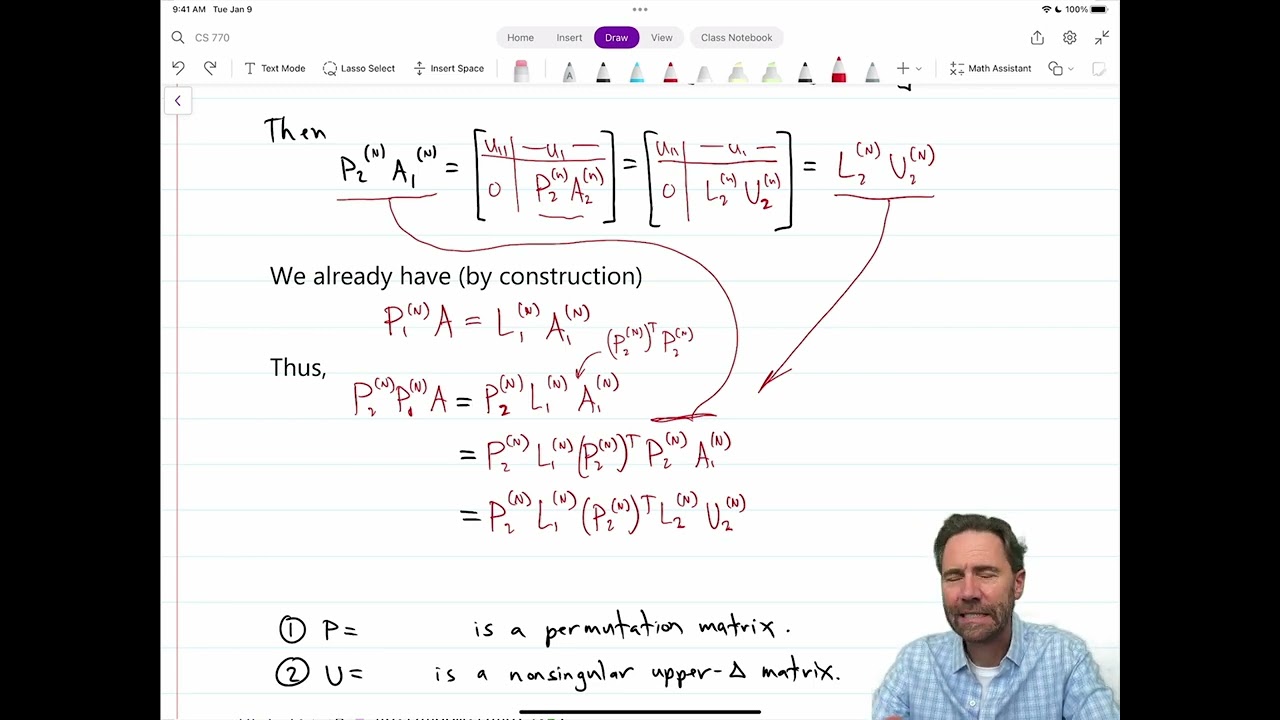 9:41 AM Tue Jan 9
100%
CS 770
Home Insert Draw View Class Notebook
Text Mode Lasso Select Insert Space Math Assistant
Then
P₂⁽ᴺ⁾ A₁⁽ᴺ⁾ = [ u₁₁ | — u₁ — ; 0 | P₂⁽ⁿ⁾ A₂⁽ⁿ⁾ ] = [ u₁₁ | — u₁ — ; 0 | L₂⁽ⁿ⁾ U₂⁽ⁿ⁾ ] = L₂⁽ᴺ⁾ U₂⁽ᴺ⁾
We already have (by construction)
P₁⁽ᴺ⁾ A = L₁⁽ᴺ⁾ A₁⁽ᴺ⁾
(P₂⁽ᴺ⁾)ᵀ P₂⁽ᴺ⁾
Thus,
P₂⁽ᴺ⁾ P₁⁽ᴺ⁾ A = P₂⁽ᴺ⁾ L₁⁽ᴺ⁾ A₁⁽ᴺ⁾
= P₂⁽ᴺ⁾ L₁⁽ᴺ⁾ (P₂⁽ᴺ⁾)ᵀ P₂⁽ᴺ⁾ A₁⁽ᴺ⁾
= P₂⁽ᴺ⁾ L₁⁽ᴺ⁾ (P₂⁽ᴺ⁾)ᵀ L₂⁽ᴺ⁾ U₂⁽ᴺ⁾
① P = is a permutation matrix.
② U = is a nonsingular upper-Δ matrix.